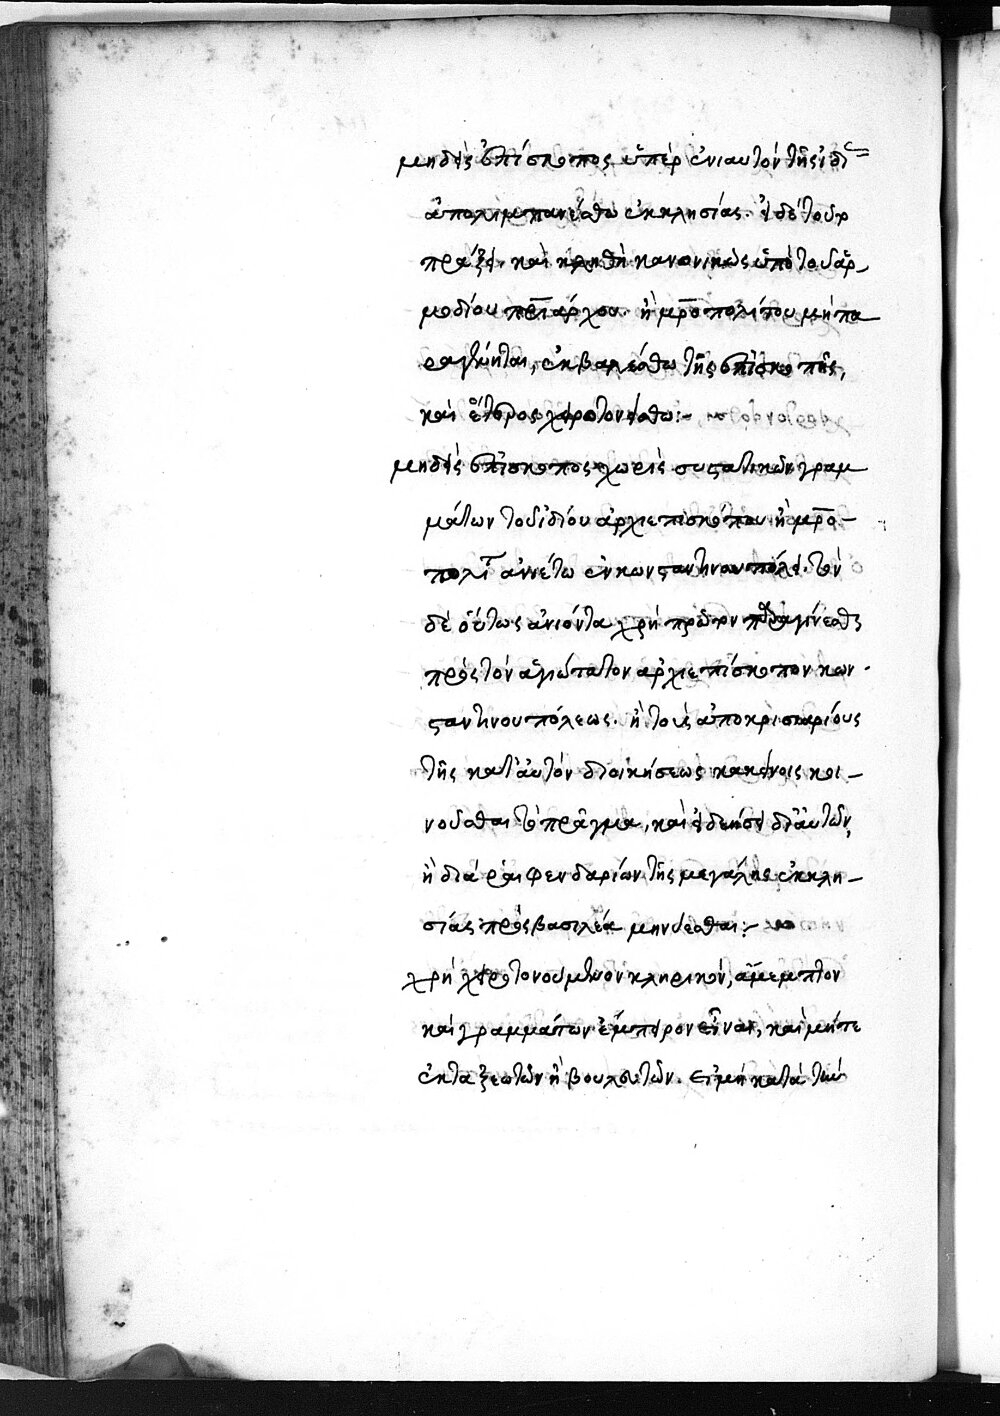 μηδεὶς ἐπίσκοπος ὑπὲρ ἐνιαυτὸν τῆς ἰδί
ἀπολιμπανέσθω ἐκκλησίας. εἰ δὲ τοῦτο
πράξει, καὶ κληθῆ κανονικῶς ὑπὸ τοῦ ἁρ
μοδίου πριάρχου ἢ μροπολίτου μὴ πα
ραγένηται, ἐκβαλέσθω τῆς ἐπισκοπῆς,
καὶ ἕτερος χειροτονείσθω:-
μηδεὶς ἐπίσκοπος χωρὶς συστατικῶν γραμ
μάτων τοῦ ἰδίου ἀρχιεπισκόπου ἢ μρο-
πολίτ ἀνΐέτω ἐν κωνσταντινουπόλει. τὸν
δὲ οὕτως ἀνιόντα χρὴ πρῶτον παραγίνεσθαι
πρὸς τὸν ἁγιώτατον ἀρχιεπίσκοπον κων
σταντινουπόλεως. ἢ τοὺς ἀποκρισιαρίους
τῆς κατ' αὐτὸν διοικήσεως κακείνοις κοι-
νοῦσθαι τὸ πρᾶγμα, καὶ εἰ δεήσει δι' αὐτῶν,
ἢ διὰ ῥαιφενδαρίων τῆς μεγάλης ἐκκλη-
σίας πρὸς βασιλέα μηνύεσθαι:-
χρὴ χειροτονούμενον κληρικὸν, ἄμεμπτον
καὶ γραμμάτων ἔμπειρον εἶναι, καὶ μήτε
ἐκ ταξεωτῶν ἢ βουλευτῶν. εἰ μὴ κατὰ τὴν